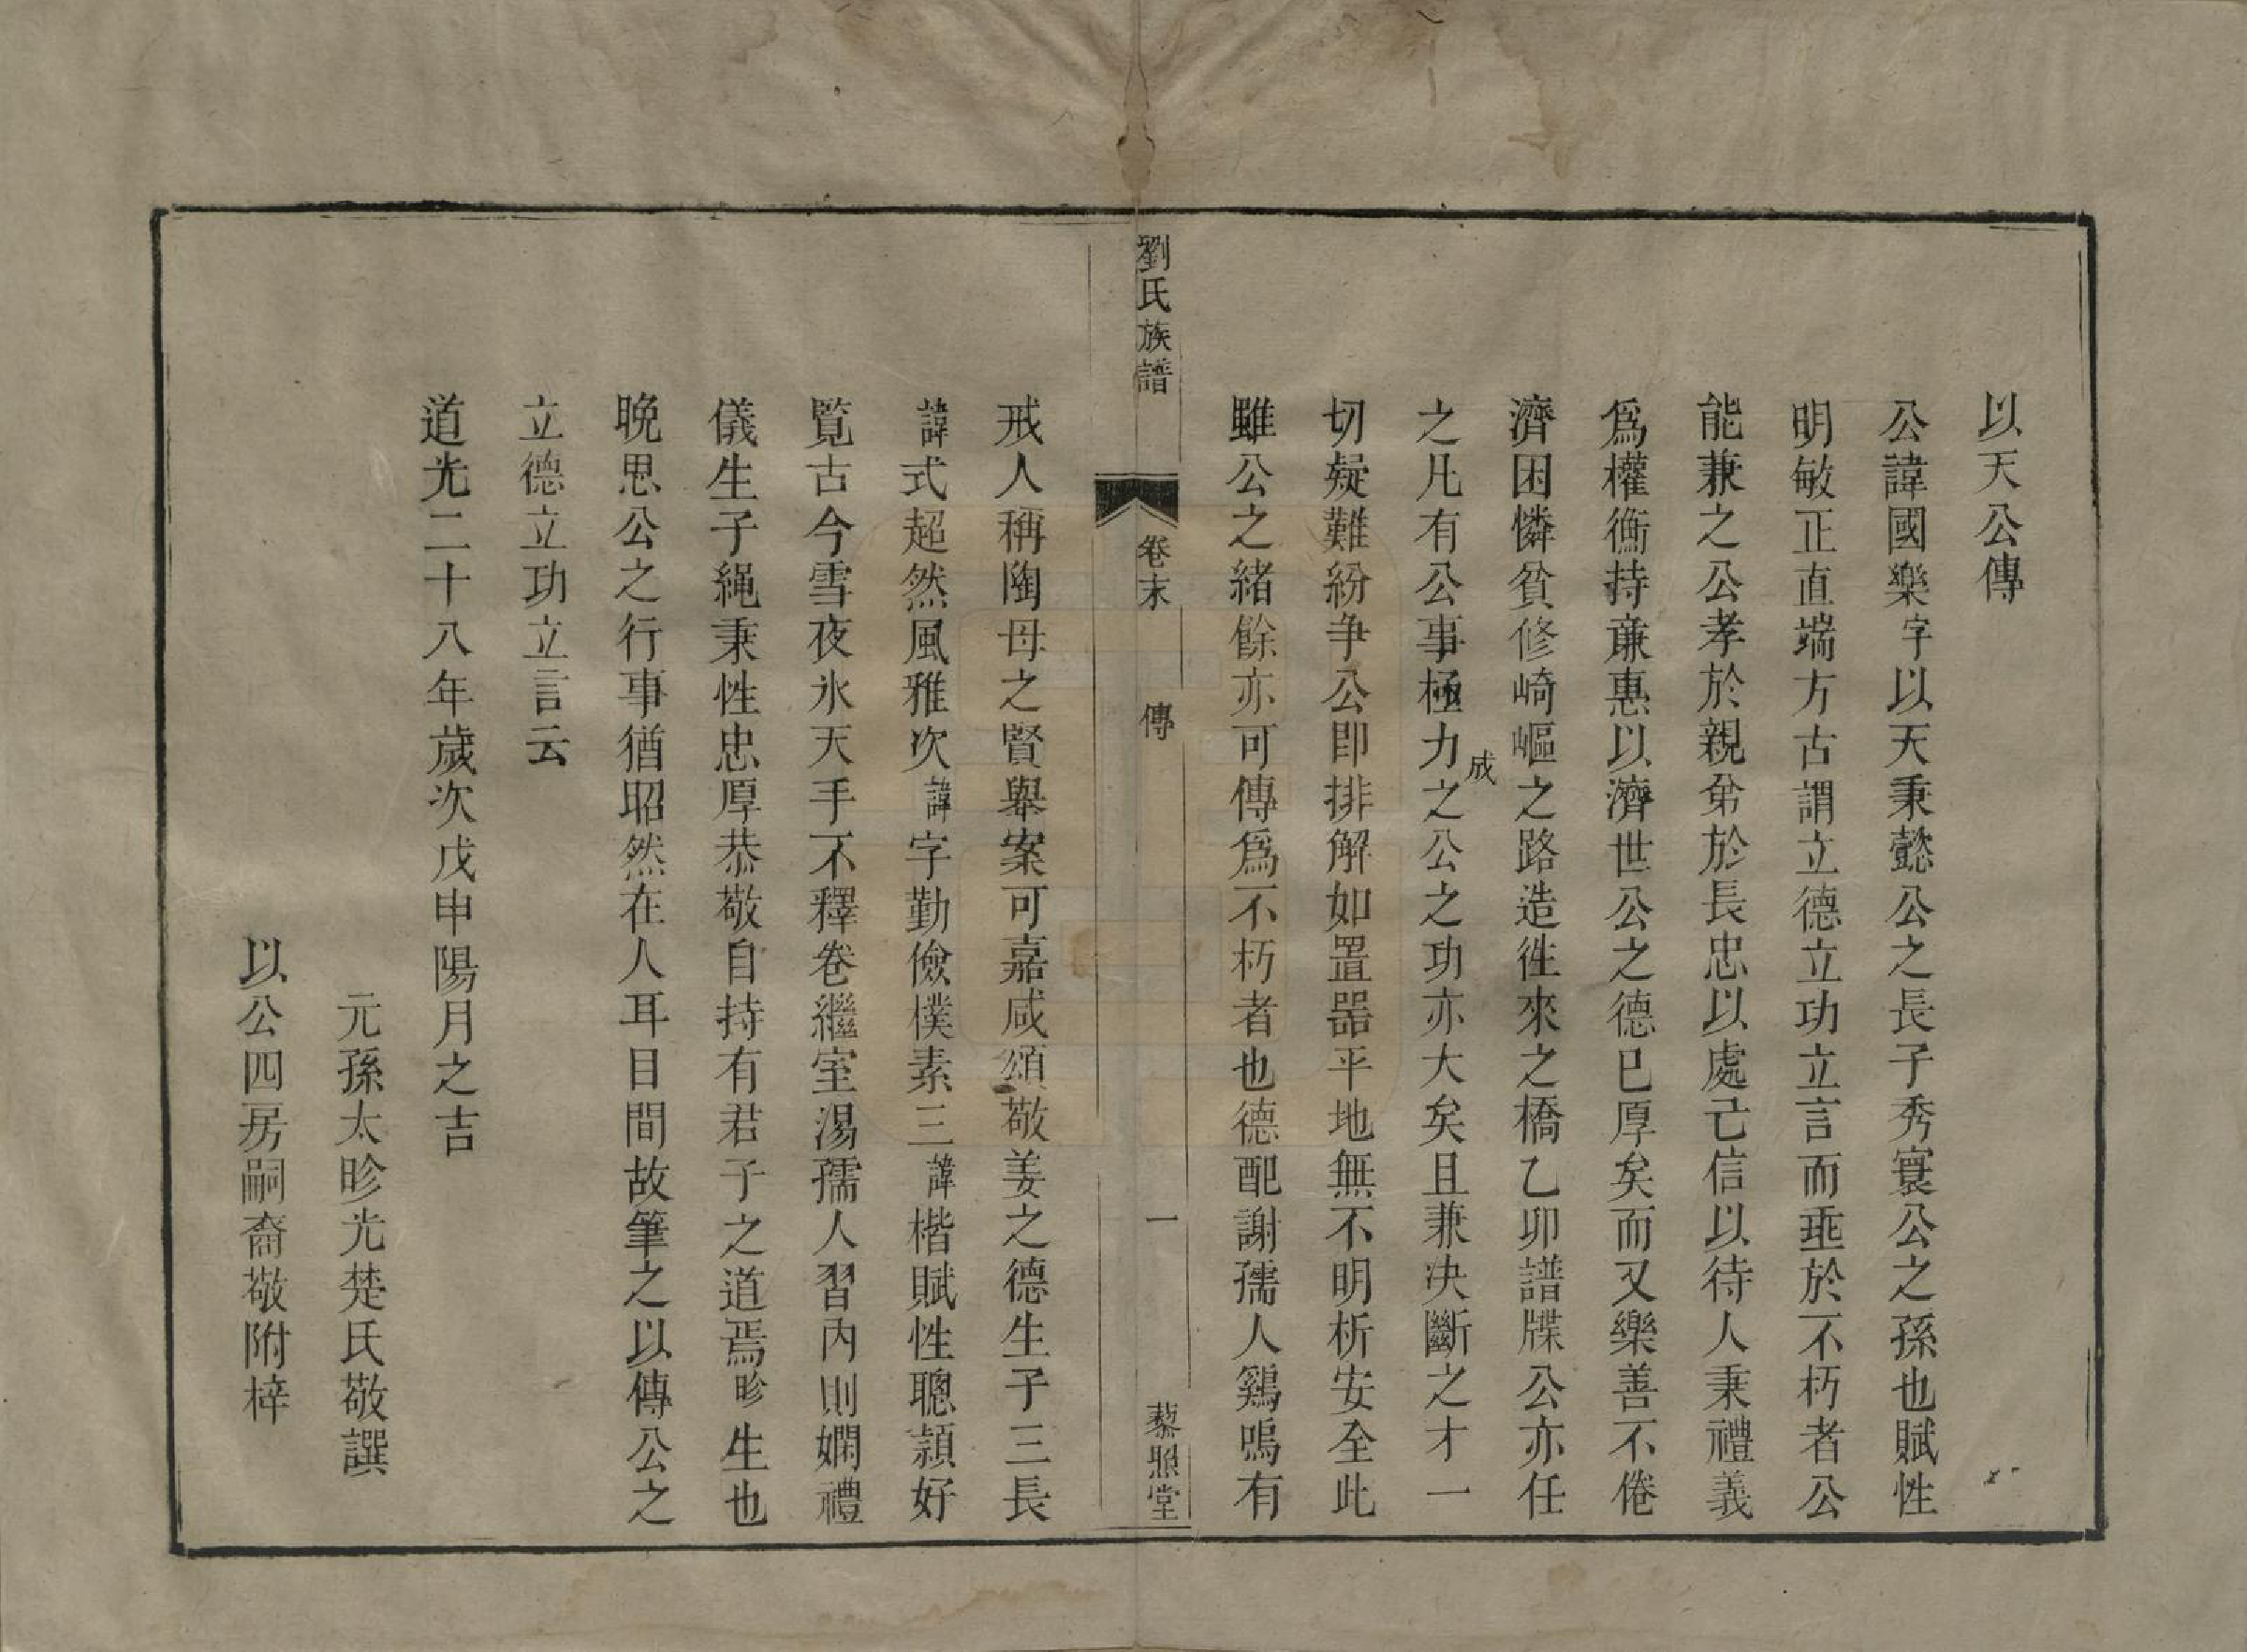 以天公傳
公諱國樂字以天秉懿公之長子秀寰公之孫也賦性
明敏正直端方古謂立德立功立言而垂於不朽者公
能兼之公孝於親弟於長忠以處己信以待人秉禮義
爲權衡持廉惠以濟世公之德已厚矣而又樂善不倦
濟困憐貧修崎嶇之路造徃來之橋乙卯譜牒公亦任
之凡有公事極力成之公之功亦大矣且兼决斷之才一
切疑難紛争公即排解如置器平地無不明析安全此
雖公之緒餘亦可傳爲不朽者也德配謝孺人鷄鳴有
劉氏族譜
卷末
傳
一
藜照堂
戒人稱陶母之賢舉案可嘉咸頌敬姜之德生子三長
諱式超然風雅次諱字勤儉樸素三諱楷賦性聰穎好
覧古今雪夜氷天手不釋卷繼室湯孺人習內則嫻禮
儀生子繩秉性忠厚恭敬自持有君子之道焉昣生也
晚思公之行事猶昭然在人耳目間故筆之以傳公之
立德立功立言云
道光二十八年歲次戊申陽月之吉
元孫太昣光楚氏敬譔
以公四房嗣裔敬附梓